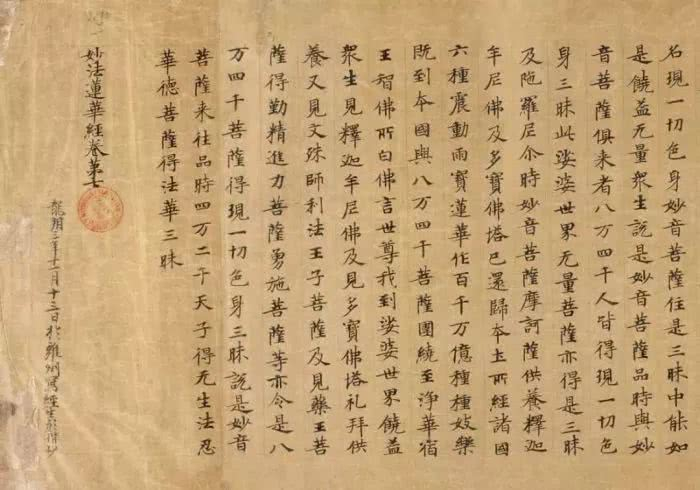 名現一切色身妙音菩薩住是三昧中能如
是饒益无量衆生説是妙音菩薩品時與妙
音菩薩俱来者八万四千人皆得現一切色
身三昧此娑婆世界无量菩薩亦得是三昧
及陁羅尼尒時妙音菩薩摩訶薩供養釋迦
牟尼佛及多寶佛塔已還歸本土所經諸國
六種震動雨寶蓮華作百千万億種種妓樂
既到本國與八万四千菩薩圍繞至淨華宿
王智佛所白佛言世尊我到娑婆世界饒益
衆生見釋迦牟尼佛及見多寶佛塔礼拜供
養又見文殊師利法王子菩薩及見藥王菩
薩得勤精進力菩薩勇施菩薩等亦令是八
万四千菩薩得現一切色身三昧説是妙音
菩薩来往品時四万二千天子得无生法忍
華德菩薩得法華三昧
妙法蓮華經卷第七
龍朔三年十一月十三日於雍州寫經生彭